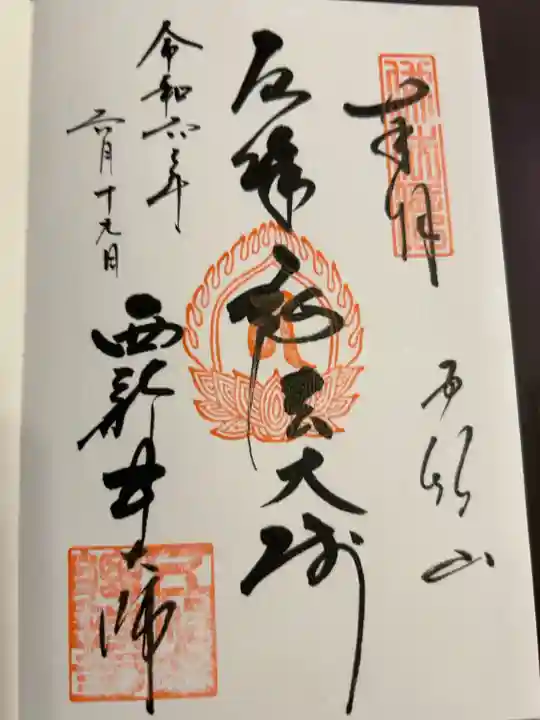 奉拝
五智山
厄除弘法大師
令和六年
六月十九日
西新井大師